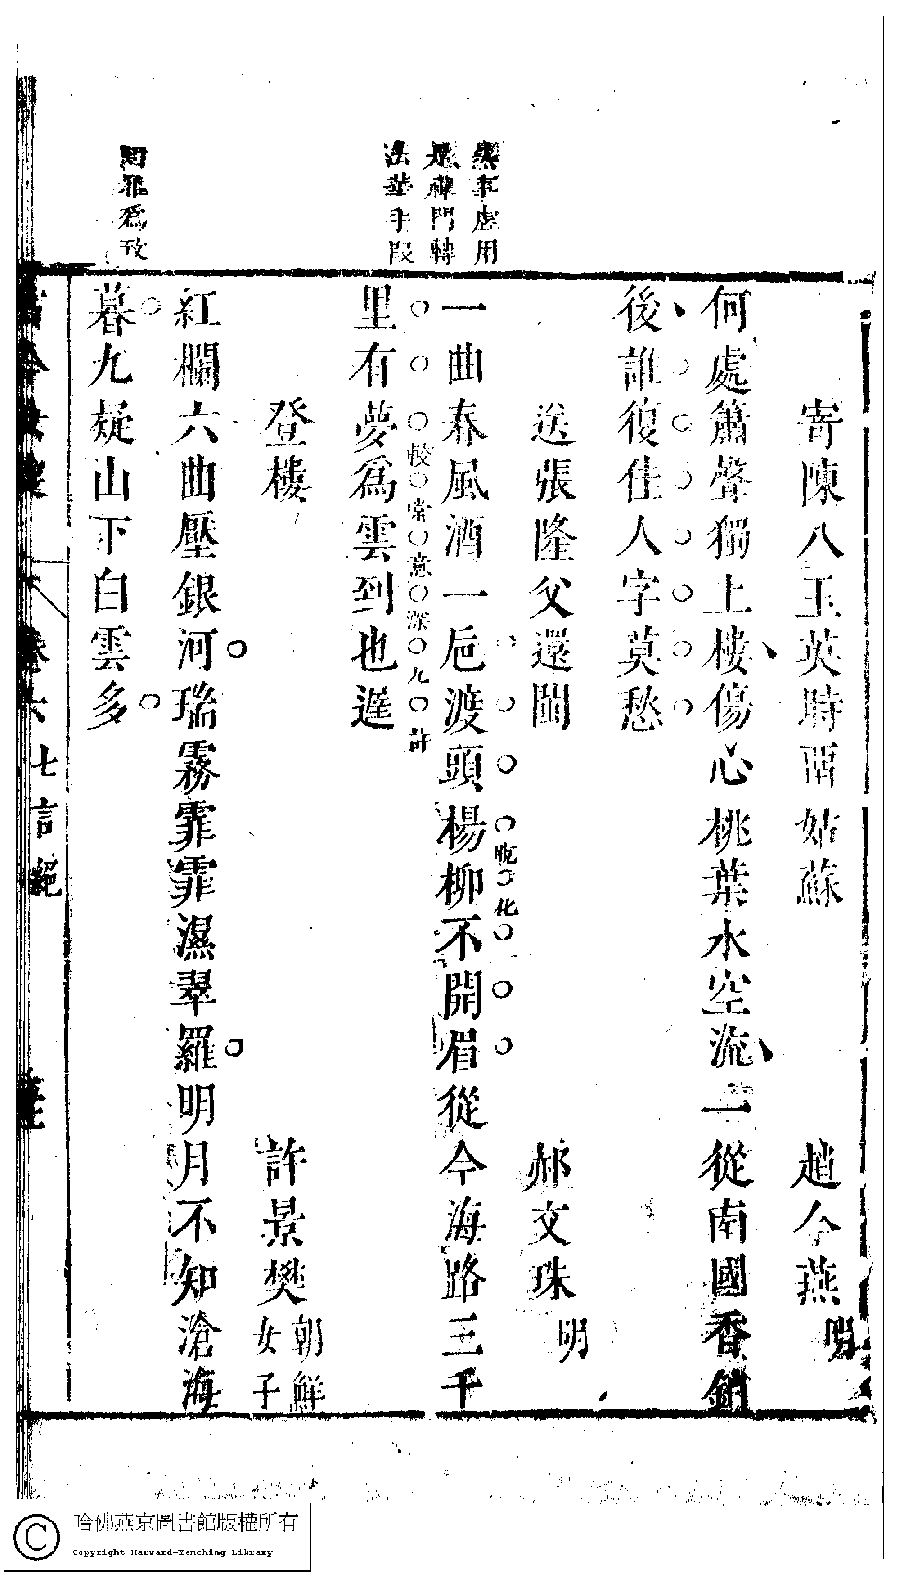 寄陳八玉英時酉姑蘇　趙今燕明
何處簫聲獨上樓傷心桃葉水空流一從南國香銷
後誰復佳人字莫愁
送張隆父還閩　郝文珠明
一曲春風酒一巵渡頭楊柳不開眉從今海路三千
里有夢爲雲到也遲
較常意深九許
登樓　許景樊朝鮮女子
紅欄六曲壓銀河瑞霧霏霏濕翠羅明月不知滄海
暮九疑山下白雲多
卷六七言絕
哈佛燕京圖書館版權所有
Copyright Harvard-Yenching Library